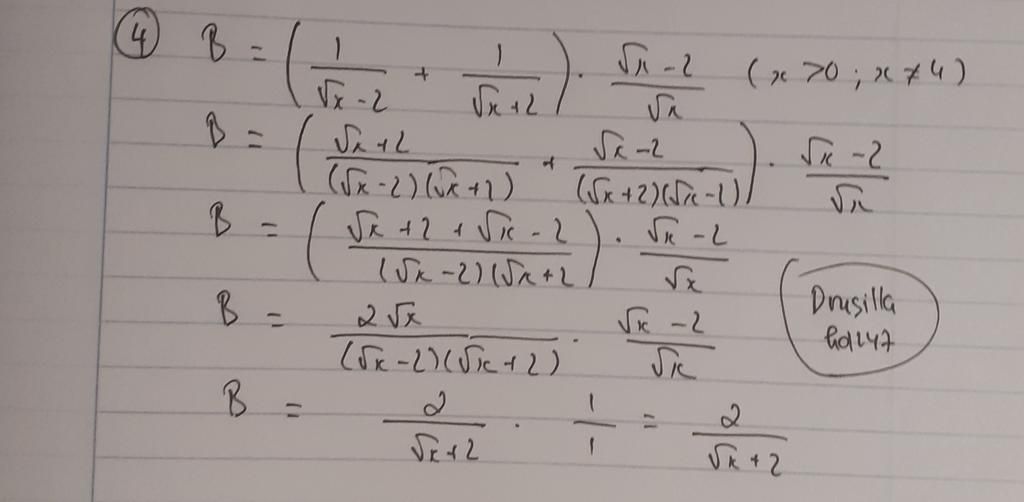 ④ B = ( 1/(√x - 2) + 1/(√x + 2) ) · (√x - 2)/√x (x > 0 ; x ≠ 4)
B = ( (√x + 2)/((√x - 2)(√x + 2)) + (√x - 2)/((√x + 2)(√x - 2)) ) · (√x - 2)/√x
B = ( (√x + 2 + √x - 2)/((√x - 2)(√x + 2 ) · (√x - 2)/√x
B = 2√x/((√x - 2)(√x + 2)) · (√x - 2)/√x
Drusilla
B = 2/(√x + 2) · 1/1 = 2/(√x + 2)